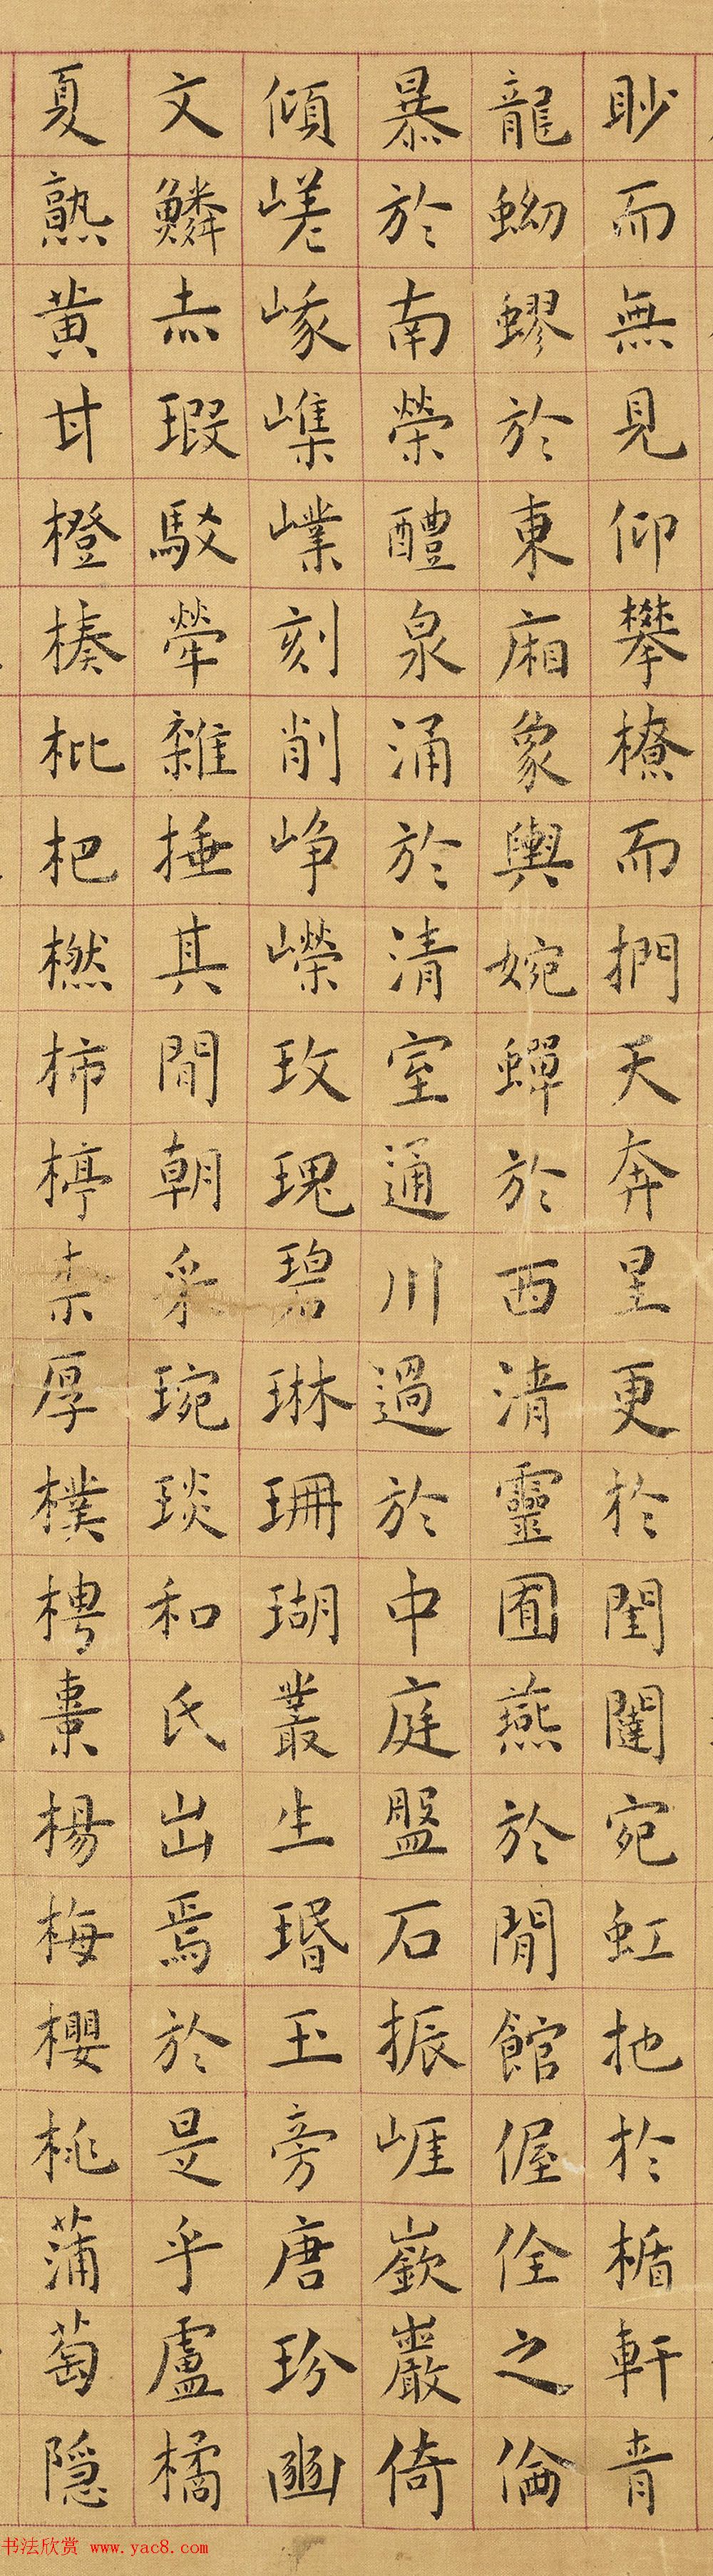 眇而無見仰攀橑而捫天奔星更於閨闥宛虹扡於楯軒青
龍蚴蟉於東廂象輿婉蟬於西清靈圄燕於閒館偓佺之倫
暴於南榮醴泉涌於清室通川過於中庭盤石振崕嶔巖倚
傾嵯峩嶫刻削崢嶸玫瑰碧琳珊瑚叢生瑉玉旁唐玢豳
文鱗赤瑕駁犖雜捶其間朝采琬琰和氏出焉於是乎盧橘
夏熟黄甘橙楱枇杷橪柿楟柰厚樸梬棗楊梅櫻桃蒲萄隱
书法欣赏 www.yac8.com